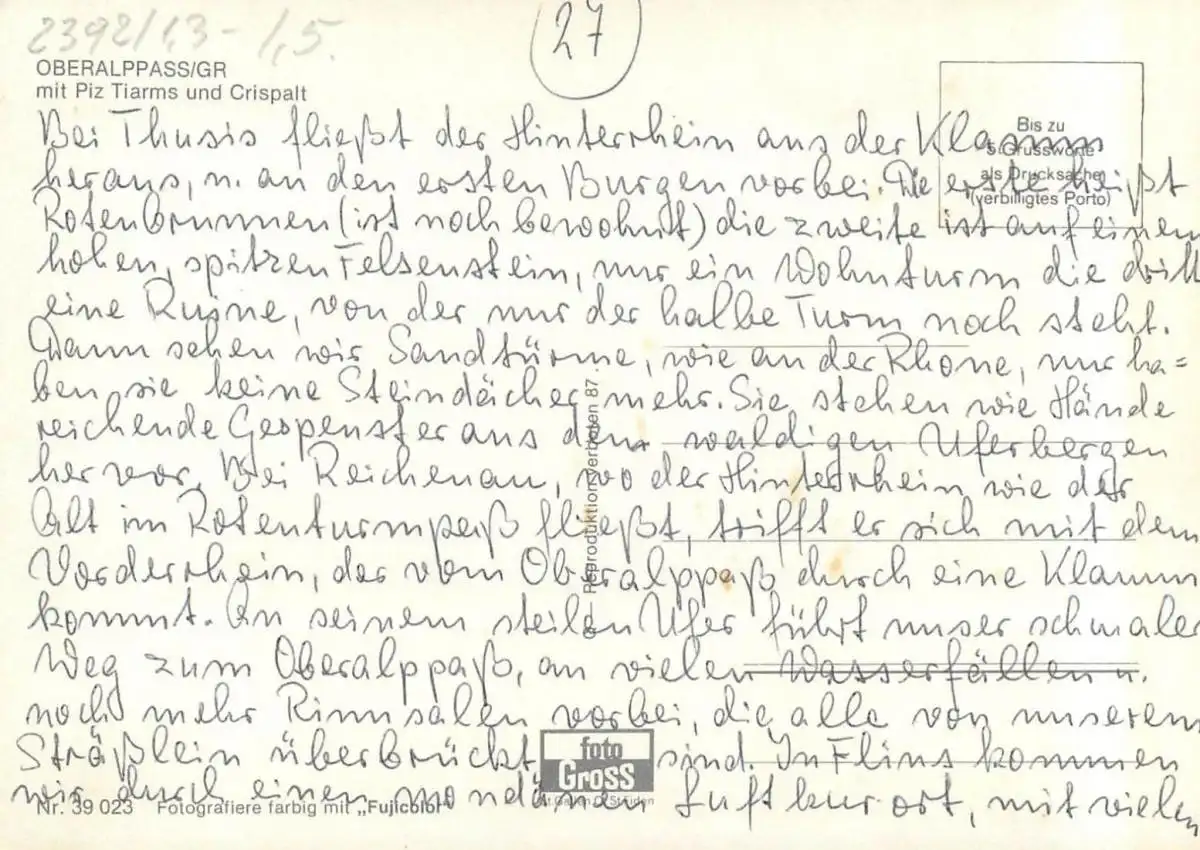 2392/1,3- 1,5.
27
OBERALPPASS/GR
mit Piz Tiarms und Crispalt
Bis zu
5 Grussworte
als Drucksache
(verbilligtes Porto)
Bei Thusis fließt der Hinterrhein aus der Klamm
heraus, u. an den ersten Burgen vorbei. Die erste heißt
Rotenbrunnen (ist noch bewohnt) die zweite ist auf einem
hohen, spitzen Felsenstein, nur ein Wohnturm die dritte
eine Ruine, von der nur der halbe Turm noch steht.
Dann sehen wir Sandtürme, wie an der Rhone, nur ha=
ben sie keine Steindächer mehr. Sie stehen wie Hände
reichende Gespenster aus den waldigen Uferbergen
hervor. Bei Reichenau, wo der Hinterrhein wie der
Alt im Rotenturmpaß fließt, trifft er sich mit dem
Vorderrhein, der vom Oberalppaß durch eine Klamm
kommt. An seinem steilen Ufer führt unser schmaler
Weg zum Oberalppaß, an vielen Wasserfällen u.
noch mehr Rinnsalen vorbei, die alle von unserem
Sträßlein überbrückt sind. In Flins kommen
wir durch einen mondänen Luftkurort, mit vielen
Reproduktion verboten 87
foto
Gross
St. Gallen
Nr. 39 023 Fotografiere farbig mit „Fujicolor"